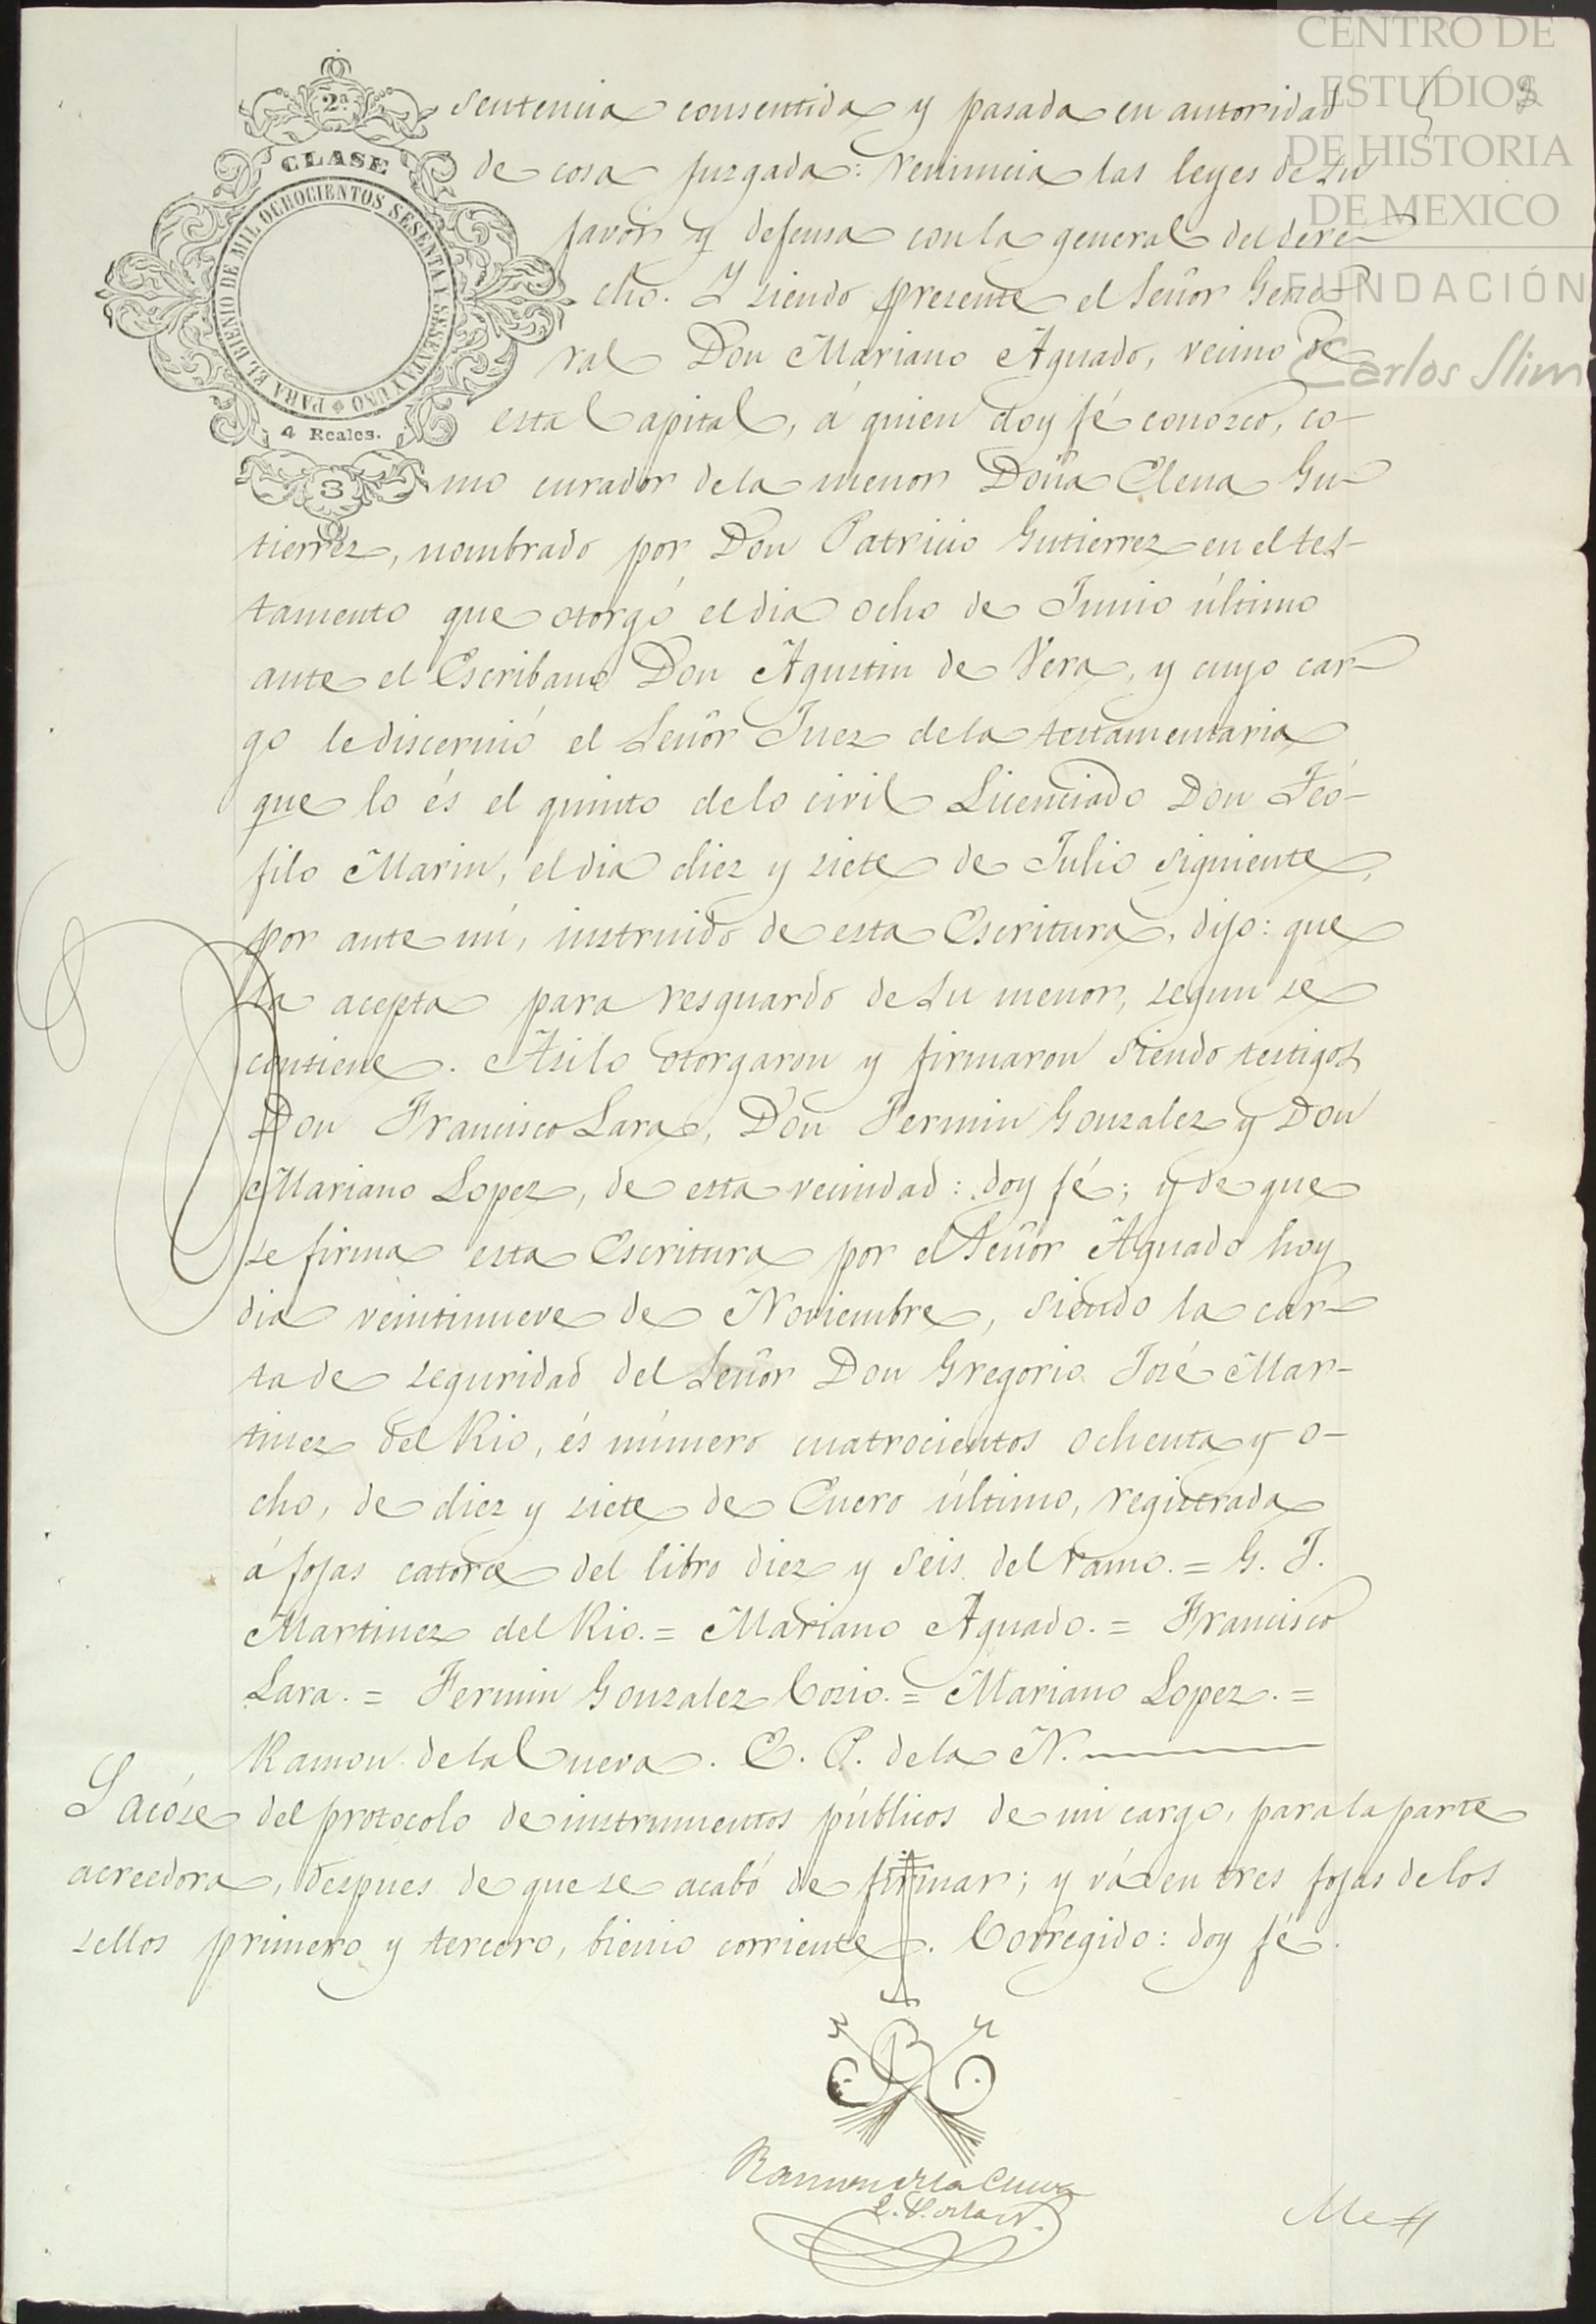 CENTRO DE
ESTUDIOS
DE HISTORIA
DE MEXICO
FUNDACIÓN
Carlos Slim
2ª
CLASE
PARA EL BIENIO DE MIL OCHOCIENTOS SESENTA Y SESENTA Y UNO
4 Reales.
3
sentencia consentida y pasada en autoridad
de cosa juzgada: renuncia las leyes de su
favor y defensa con la general del dere-
cho. Y siendo presente el Señor Gene-
ral Don Mariano Aguado, vecino de
esta Capital, á quien doy fé conozco, co-
mo curador de la menor Doña Elena Gu-
tierrez, nombrado por Don Patricio Gutierrez en el tes-
tamento que otorgó el dia ocho de Junio último
ante el Escribano Don Agustin de Vera, y cuyo car-
go le discernió el Señor Juez de la testamentaria
que lo és el quinto de lo civil Licenciado Don Teó-
filo Marin, el dia diez y siete de Julio siguiente,
por ante mí, instruido de esta Escritura, dijo: que
la acepta para resguardo de su menor, segun se
contiene. Asilo otorgaron y firmaron siendo testigos
Don Francisco Lara, Don Fermin Gonzalez y Don
Mariano Lopez, de esta vecindad: doy fé; y de que
se firma esta Escritura por el Señor Aguado hoy
dia veintinueve de Noviembre, siendo la car-
ta de seguridad del Señor Don Gregorio José Mar-
tinez del Rio, és número cuatrocientos ochenta y o-
cho, de diez y siete de Enero último, registrada
á fojas catorce del libro diez y seis del ramo. = G. J.
Martinez del Rio. = Mariano Aguado. = Francisco
Lara. = Fermin Gonzalez Cosio. = Mariano Lopez. =
Ramon de la Cueva. E. P. de la N.
Sacóse del protocolo de instrumentos públicos de mi cargo, para la parte
acreedora, despues de que se acabó de firmar; y vá en tres fojas de los
sellos primero y tercero, bienio corriente. Corregido: doy fé.
Ramon de la Cueva
E. P. de la N.